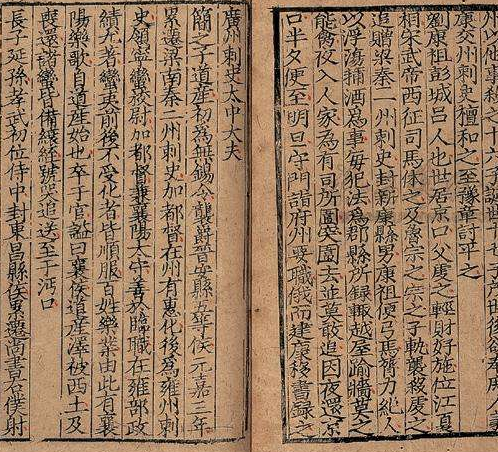 康交州刺史檀和之至豫章討平之
劉康祖彭城呂人也世居京口父虔之輕財好施位江夏
相宋武帝西征司馬休之及魯宗之宗之子軌襲殺虔之
追贈梁秦二州刺史封新康縣男康祖便弓馬膂力絕人
以浮蕩蒱酒爲事每犯法爲郡縣所錄輒越屋踰牆莫之
能禽夜入人家爲有司所圍突圍去並莫敢追因夜還京
口半夕便至明旦守門詣府州要職俄而建康移書錄之
廣州刺史太中大夫
簡之子道產初爲無錫令襲爵晉安縣五等侯元嘉三年
累遷梁南秦二州刺史加都督在州有惠化後爲雍州刺
史領寧蠻校尉加都督兼襄陽太守善於臨職在雍部政
績尤著蠻夷前後不受化者皆順服百姓樂業由此有襄
陽樂歌自道產始也卒于官諡曰襄侯道產澤被西土及
喪還諸蠻皆備縗絰號哭追送至于沔口
長子延孫孝武初位侍中封東昌縣侯累遷尚書右僕射